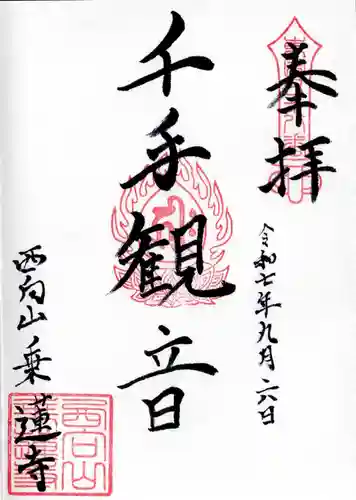 奉拝
令和七年九月六日
千手観音
西向山乗蓮寺
西向山